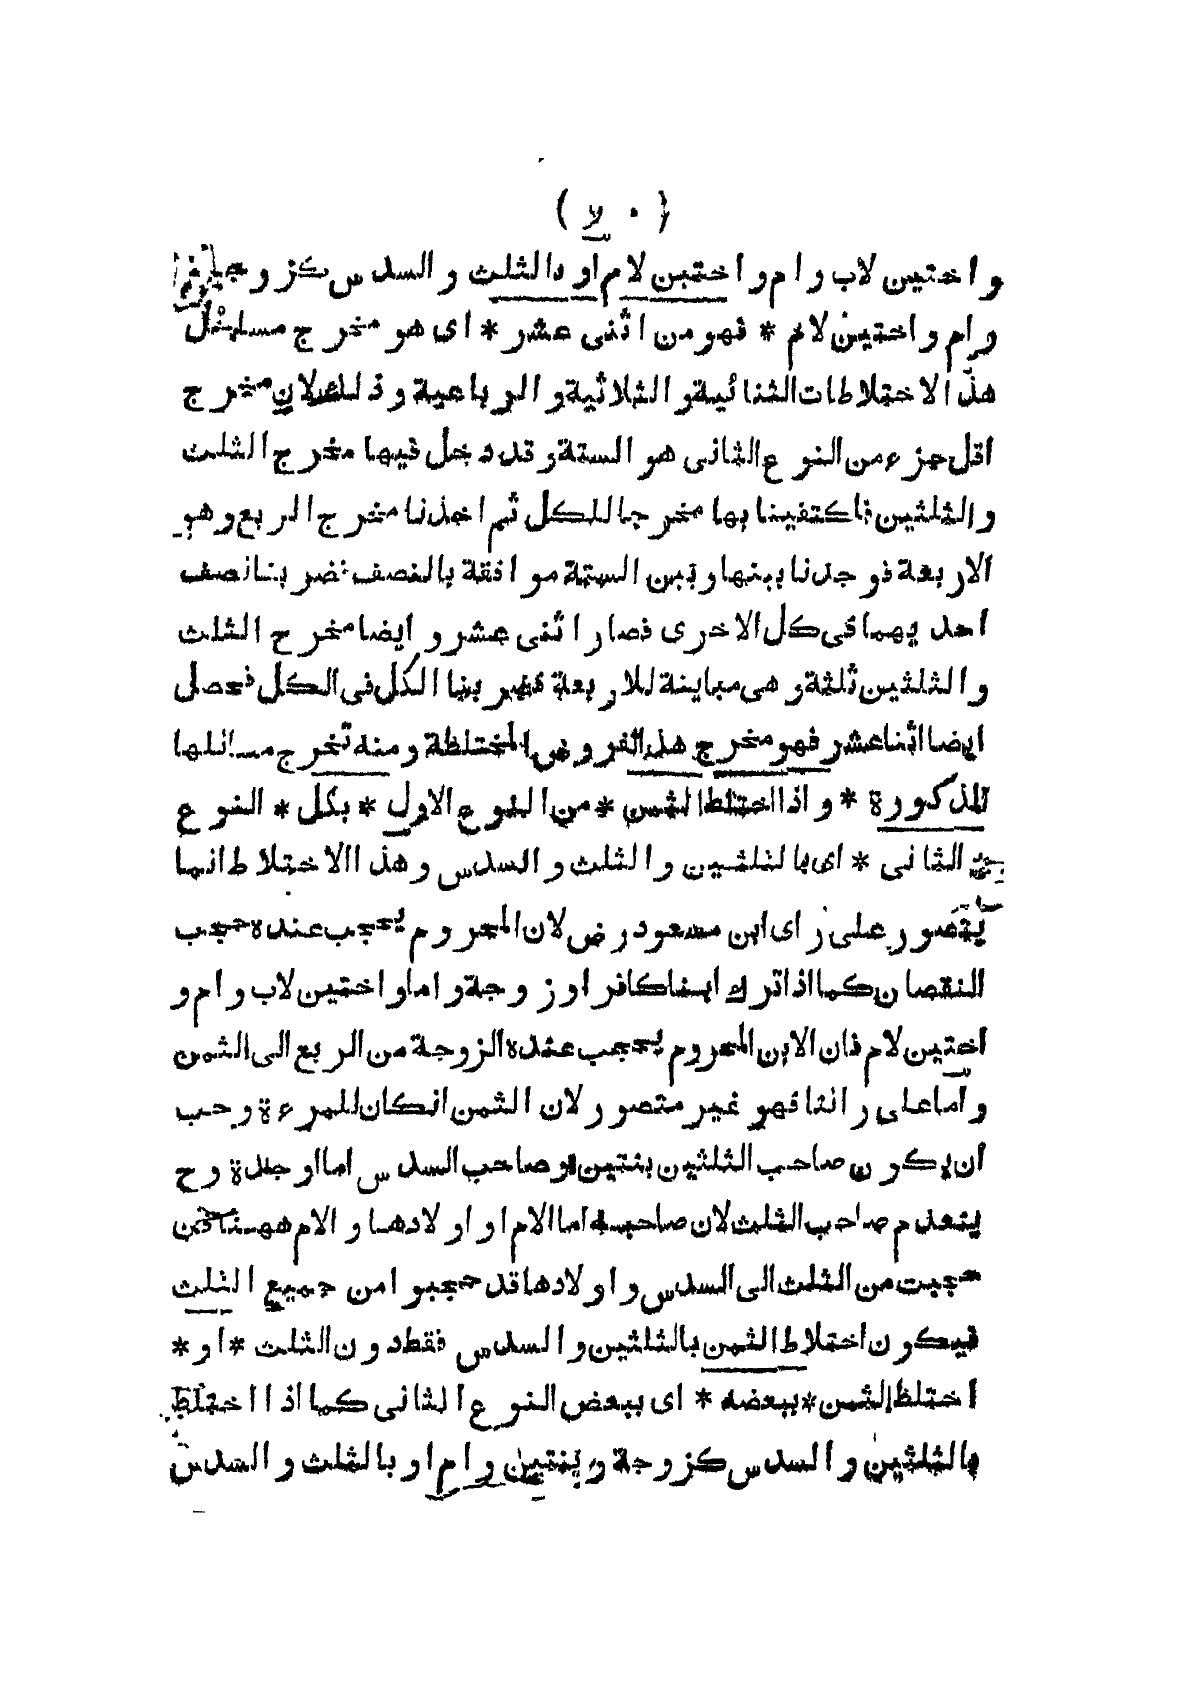 ( ٧٠ )
و اختين لاب و ام و اختين لام او بالثلث و السدس كز و جة
و ام و اختين لام * فهو من اثنى عشر * اى هو مخرج مسائل
هذه الاختلاطات الثنائية و الثلاثية و الرباعية و ذلك لان مخرج
اقل جزء من النوع الثانى هو الستة و قد دخل فيها مخرج الثلث
و الثلثين فاكتفينا بها مخرجا للكل ثم اخذنا مخرج الربع و هو
الاربعة فوجدنا بينها و بين الستة موافقة بالنصف فضربنا نصف
احديهما فى كل الاخرى فصار اثنى عشر و ايضا مخرج الثلث
و الثلثين ثلثة و هى مباينة للاربعة فضربنا الكل فى الكل فحصل
ايضا اثنا عشر فهو مخرج هذه الفروض المختلطة و منه تخرج مسائلها
المذكورة * و اذا اختلط الثمن * من النوع الاول * بكل * النوع
الثانى * اى بالثلثين و الثلث و السدس و هذا الاختلاط انما
يتصور على راى ابن مسعود رض لان المحروم يحجب عنده حجب
النقصان كما اذا ترك ابنا كافرا و زوجة و اما و اختين لاب و ام و
اختين لام فان الابن المحروم يحجب عنده الزوجة من الربع الى الثمن
و اما على رائنا فهو غير متصور لان الثمن انكان للمرءة وجب
ان يكون صاحب الثلثين بنتين و صاحب السدس اما او جدة و ح
ينعدم صاحب الثلث لان صاحبه اما الام او اولادها و الام ههنا
حجبت من الثلث الى السدس و اولادها قد حجبوا من جميع الثلث
فيكون اختلاط الثمن بالثلثين و السدس فقط دون الثلث * او *
اختلط الثمن * ببعضه * اى ببعض النوع الثانى كما اذا اختلط
بالثلثين و السدس كزوجة و بنتين و ام او بالثلث و السدس